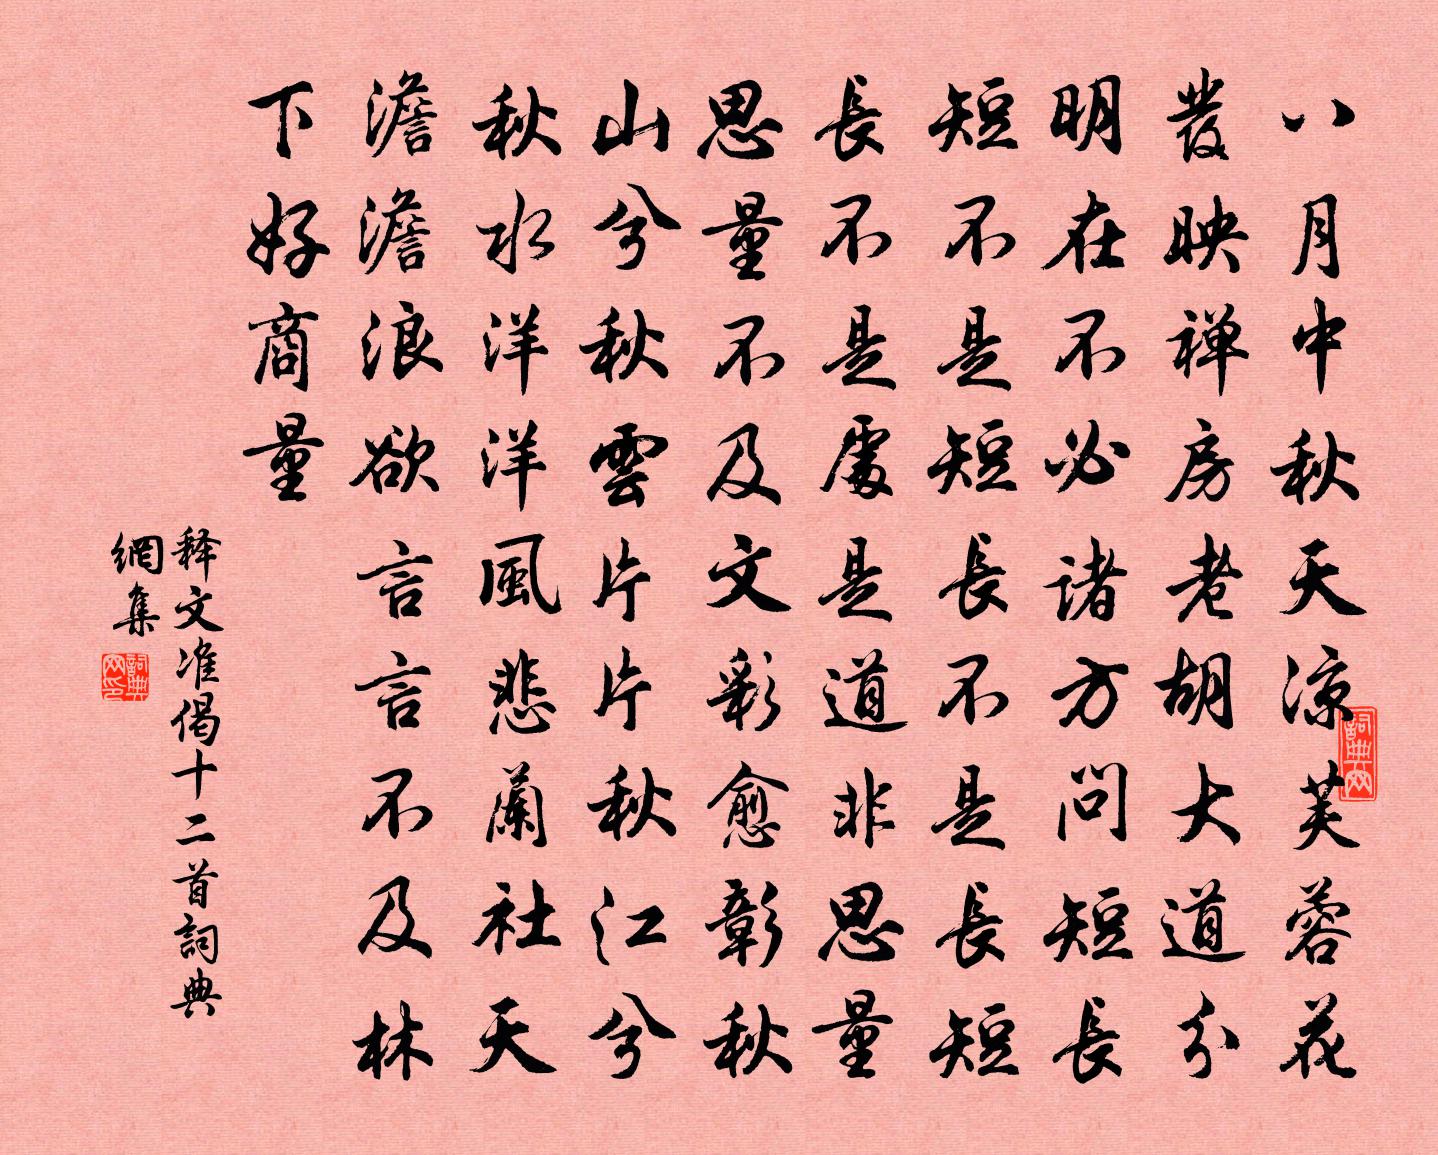 八月中秋天涼芙蓉花
發映禅房老胡大道分
明在不必诸方問短長
短不是短長不是長短
長不是處是道非思量
思量不及文彩愈彰秋
山兮秋雲片片秋江兮
秋水洋洋風悲蘭社天
澹澹浪欲言言不及林
下好商量
释文准偈十二首詞典
網集
詞典网
詞典网印